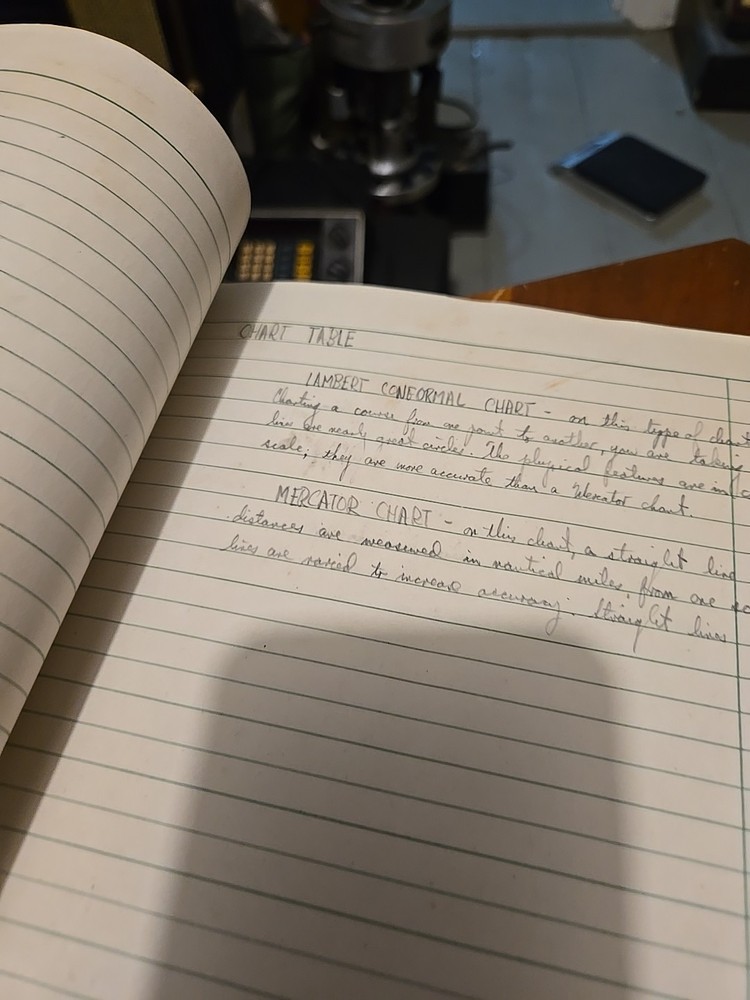 CHART TABLE
LAMBERT CONFORMAL CHART - on this type of chart
Charting a course from one point to another, you are taking
line are nearly great circles. The physical features are in
scale; they are more accurate than a Mercator chart.
MERCATOR CHART - on this chart, a straight line
distances are measured in nautical miles, from one
lines are varied to increase accuracy. Straight lines